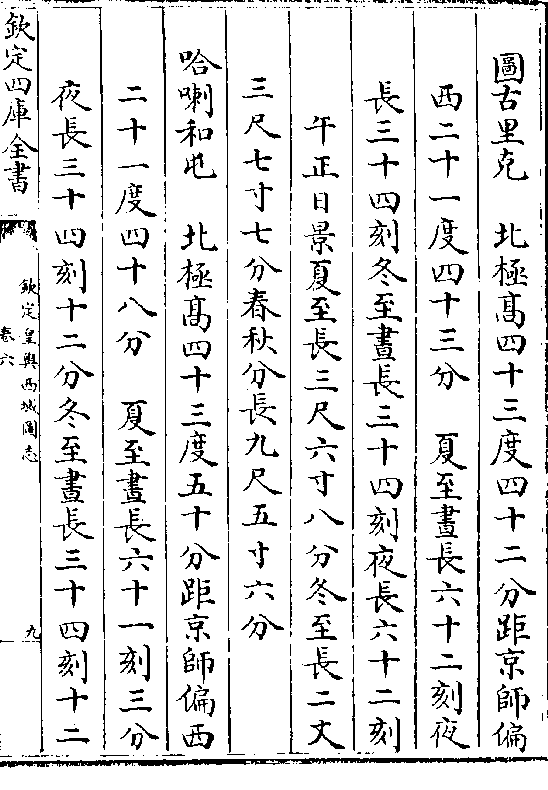 圖古里克　北極髙四十三度四十二分距京師偏
西二十一度四十三分　夏至晝長六十二刻夜
長三十四刻冬至晝長三十四刻夜長六十二刻
午正日景夏至長三尺六寸八分冬至長二丈
三尺七寸七分春秋分長九尺五寸六分
哈喇和屯　北極髙四十三度五十分距京師偏西
二十一度四十八分　夏至晝長六十一刻三分
夜長三十四刻十二分冬至晝長三十四刻十二
欽定四庫全書
欽定皇輿西域圖志
卷六
九